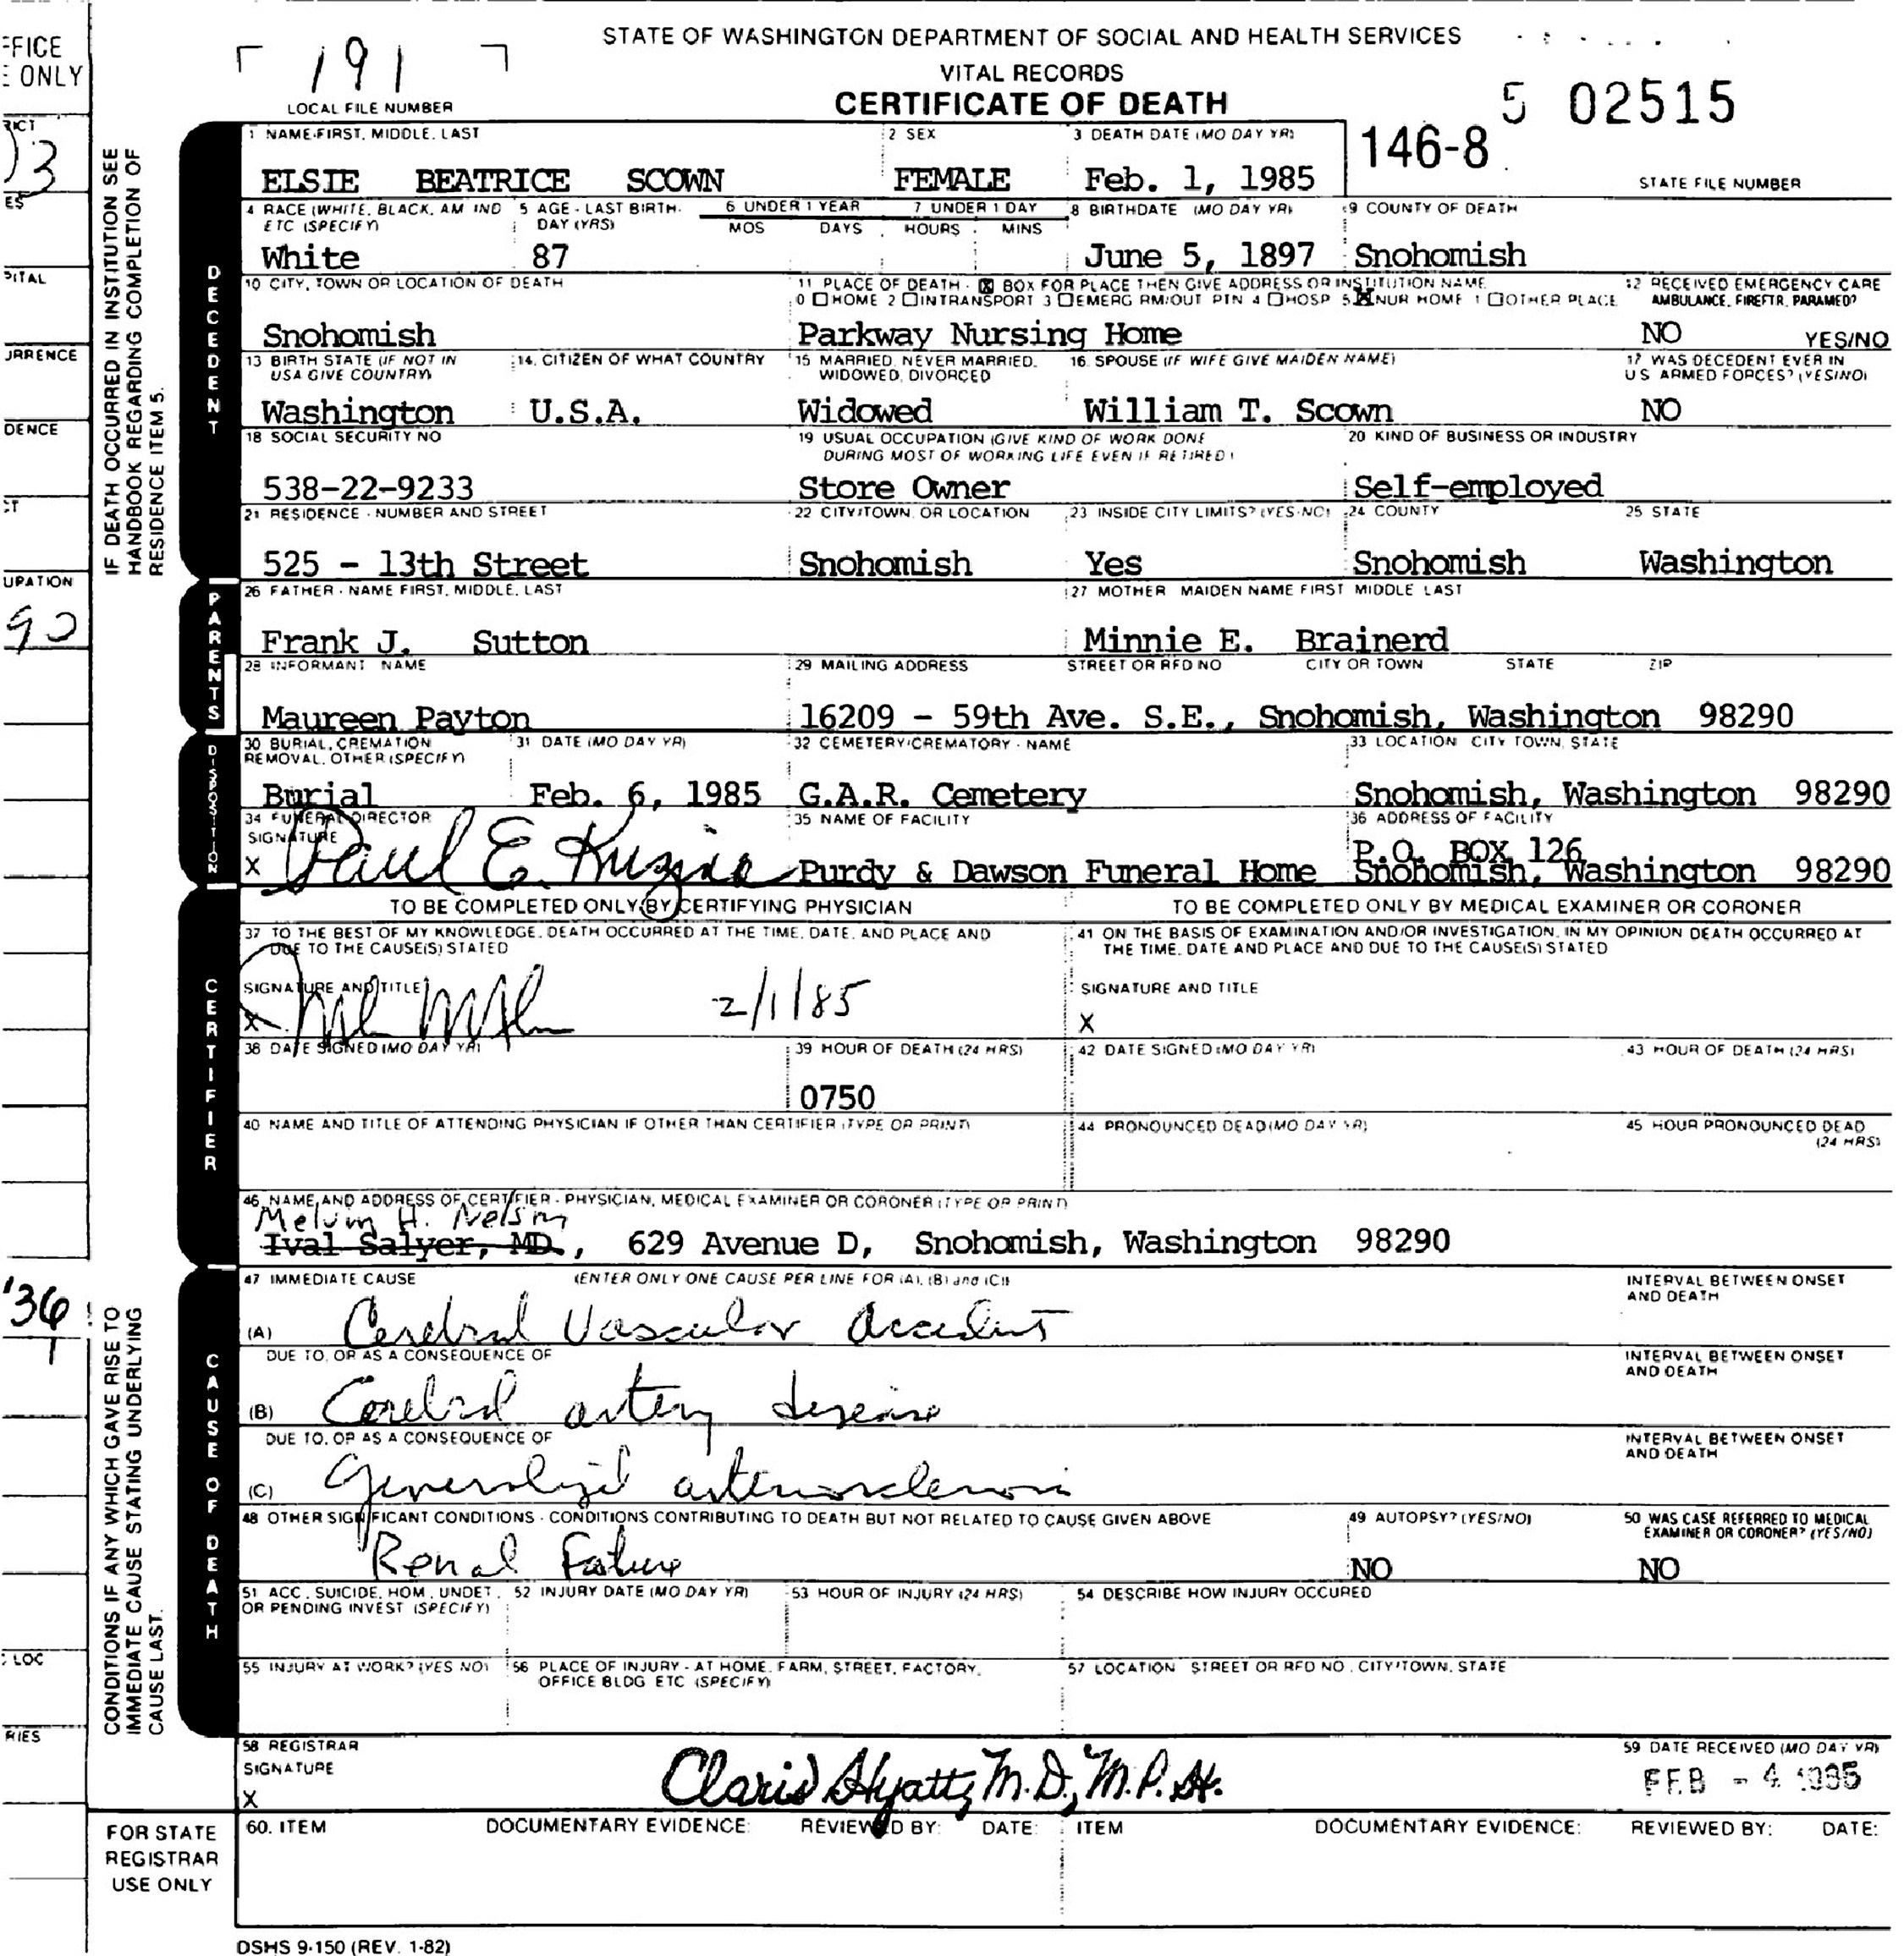 STATE OF WASHINGTON DEPARTMENT OF SOCIAL AND HEALTH SERVICES
VITAL RECORDS
CERTIFICATE OF DEATH
191
LOCAL FILE NUMBER
5 02515
146-8
STATE FILE NUMBER
FFICE
E ONLY
IF DEATH OCCURRED IN INSTITUTION SEE
HANDBOOK REGARDING COMPLETION OF
RESIDENCE ITEM 5.
DECEDENT
1 NAME-FIRST, MIDDLE, LAST 2 SEX 3 DEATH DATE (MO DAY YR)
ELSIE BEATRICE SCOWN FEMALE Feb. 1, 1985
4 RACE (WHITE, BLACK, AM IND ETC (SPECIFY) 5 AGE - LAST BIRTHDAY (YRS) 6 UNDER 1 YEAR MOS DAYS 7 UNDER 1 DAY HOURS MINS 8 BIRTHDATE (MO DAY YR) 9 COUNTY OF DEATH
White 87 June 5, 1897 Snohomish
10 CITY, TOWN OR LOCATION OF DEATH 11 PLACE OF DEATH - X BOX FOR PLACE THEN GIVE ADDRESS OR INSTITUTION NAME 12 RECEIVED EMERGENCY CARE
0 HOME 2 INTRANSPORT 3 EMERG RM/OUT PTN 4 HOSP 5 X NUR HOME 1 OTHER PLACE AMBULANCE, FIREFTR, PARAMED?
Snohomish Parkway Nursing Home NO YES/NO
13 BIRTH STATE (IF NOT IN USA GIVE COUNTRY) 14. CITIZEN OF WHAT COUNTRY 15 MARRIED, NEVER MARRIED, WIDOWED, DIVORCED 16 SPOUSE (IF WIFE GIVE MAIDEN NAME) 17 WAS DECEDENT EVER IN U S ARMED FORCES? (YES/NO)
Washington U.S.A. Widowed William T. Scown NO
18 SOCIAL SECURITY NO 19 USUAL OCCUPATION (GIVE KIND OF WORK DONE DURING MOST OF WORKING LIFE EVEN IF RETIRED) 20 KIND OF BUSINESS OR INDUSTRY
538-22-9233 Store Owner Self-employed
21 RESIDENCE - NUMBER AND STREET 22 CITY/TOWN, OR LOCATION 23 INSIDE CITY LIMITS? (YES-NO) 24 COUNTY 25 STATE
525 - 13th Street Snohomish Yes Snohomish Washington
PARENTS
26 FATHER - NAME FIRST, MIDDLE, LAST 27 MOTHER MAIDEN NAME FIRST MIDDLE LAST
Frank J. Sutton Minnie E. Brainerd
28 INFORMANT NAME 29 MAILING ADDRESS STREET OR RFD NO CITY OR TOWN STATE ZIP
Maureen Payton 16209 - 59th Ave. S.E., Snohomish, Washington 98290
DISPOSITION
30 BURIAL, CREMATION REMOVAL, OTHER (SPECIFY) 31 DATE (MO DAY YR) 32 CEMETERY/CREMATORY - NAME 33 LOCATION CITY TOWN, STATE
Burial Feb. 6, 1985 G.A.R. Cemetery Snohomish, Washington 98290
34 FUNERAL DIRECTOR SIGNATURE 35 NAME OF FACILITY 36 ADDRESS OF FACILITY
P.O. BOX 126
X Paul E. Purdy & Dawson Funeral Home Snohomish, Washington 98290
CERTIFIER
TO BE COMPLETED ONLY BY CERTIFYING PHYSICIAN TO BE COMPLETED ONLY BY MEDICAL EXAMINER OR CORONER
37 TO THE BEST OF MY KNOWLEDGE, DEATH OCCURRED AT THE TIME, DATE, AND PLACE AND DUE TO THE CAUSE(S) STATED
41 ON THE BASIS OF EXAMINATION AND/OR INVESTIGATION, IN MY OPINION DEATH OCCURRED AT THE TIME, DATE AND PLACE AND DUE TO THE CAUSE(S) STATED
SIGNATURE AND TITLE SIGNATURE AND TITLE
X 2/1/85 X
38 DATE SIGNED (MO DAY YR) 39 HOUR OF DEATH (24 HRS) 42 DATE SIGNED (MO DAY YR) 43 HOUR OF DEATH (24 HRS)
0750
40 NAME AND TITLE OF ATTENDING PHYSICIAN IF OTHER THAN CERTIFIER (TYPE OR PRINT) 44 PRONOUNCED DEAD (MO DAY YR) 45 HOUR PRONOUNCED DEAD (24 HRS)
46 NAME AND ADDRESS OF CERTIFIER - PHYSICIAN, MEDICAL EXAMINER OR CORONER (TYPE OR PRINT)
Melvin H. Nelson
Ival Salyer, MD., 629 Avenue D, Snohomish, Washington 98290
CONDITIONS IF ANY WHICH GAVE RISE TO
IMMEDIATE CAUSE STATING UNDERLYING
CAUSE LAST.
CAUSE OF DEATH
47 IMMEDIATE CAUSE (ENTER ONLY ONE CAUSE PER LINE FOR (A), (B) and (C)) INTERVAL BETWEEN ONSET AND DEATH
(A) Cerebral Vascular Accident
DUE TO, OR AS A CONSEQUENCE OF INTERVAL BETWEEN ONSET AND DEATH
(B) Cerebral artery disease
DUE TO, OR AS A CONSEQUENCE OF INTERVAL BETWEEN ONSET AND DEATH
(C) Generalized arteriosclerosis
48 OTHER SIGNIFICANT CONDITIONS - CONDITIONS CONTRIBUTING TO DEATH BUT NOT RELATED TO CAUSE GIVEN ABOVE 49 AUTOPSY? (YES/NO) 50 WAS CASE REFERRED TO MEDICAL EXAMINER OR CORONER? (YES/NO)
Renal Failure NO NO
51 ACC, SUICIDE, HOM, UNDET, OR PENDING INVEST (SPECIFY) 52 INJURY DATE (MO DAY YR) 53 HOUR OF INJURY (24 HRS) 54 DESCRIBE HOW INJURY OCCURED
55 INJURY AT WORK? (YES NO) 56 PLACE OF INJURY - AT HOME, FARM, STREET, FACTORY, OFFICE BLDG ETC (SPECIFY) 57 LOCATION STREET OR RFD NO, CITY/TOWN, STATE
58 REGISTRAR SIGNATURE 59 DATE RECEIVED (MO DAY YR)
X Claris Hyatt, M.D., M.P.H. FEB - 4 1985
FOR STATE
REGISTRAR
USE ONLY
60. ITEM DOCUMENTARY EVIDENCE: REVIEWED BY: DATE: ITEM DOCUMENTARY EVIDENCE: REVIEWED BY: DATE:
DSHS 9-150 (REV. 1-82)